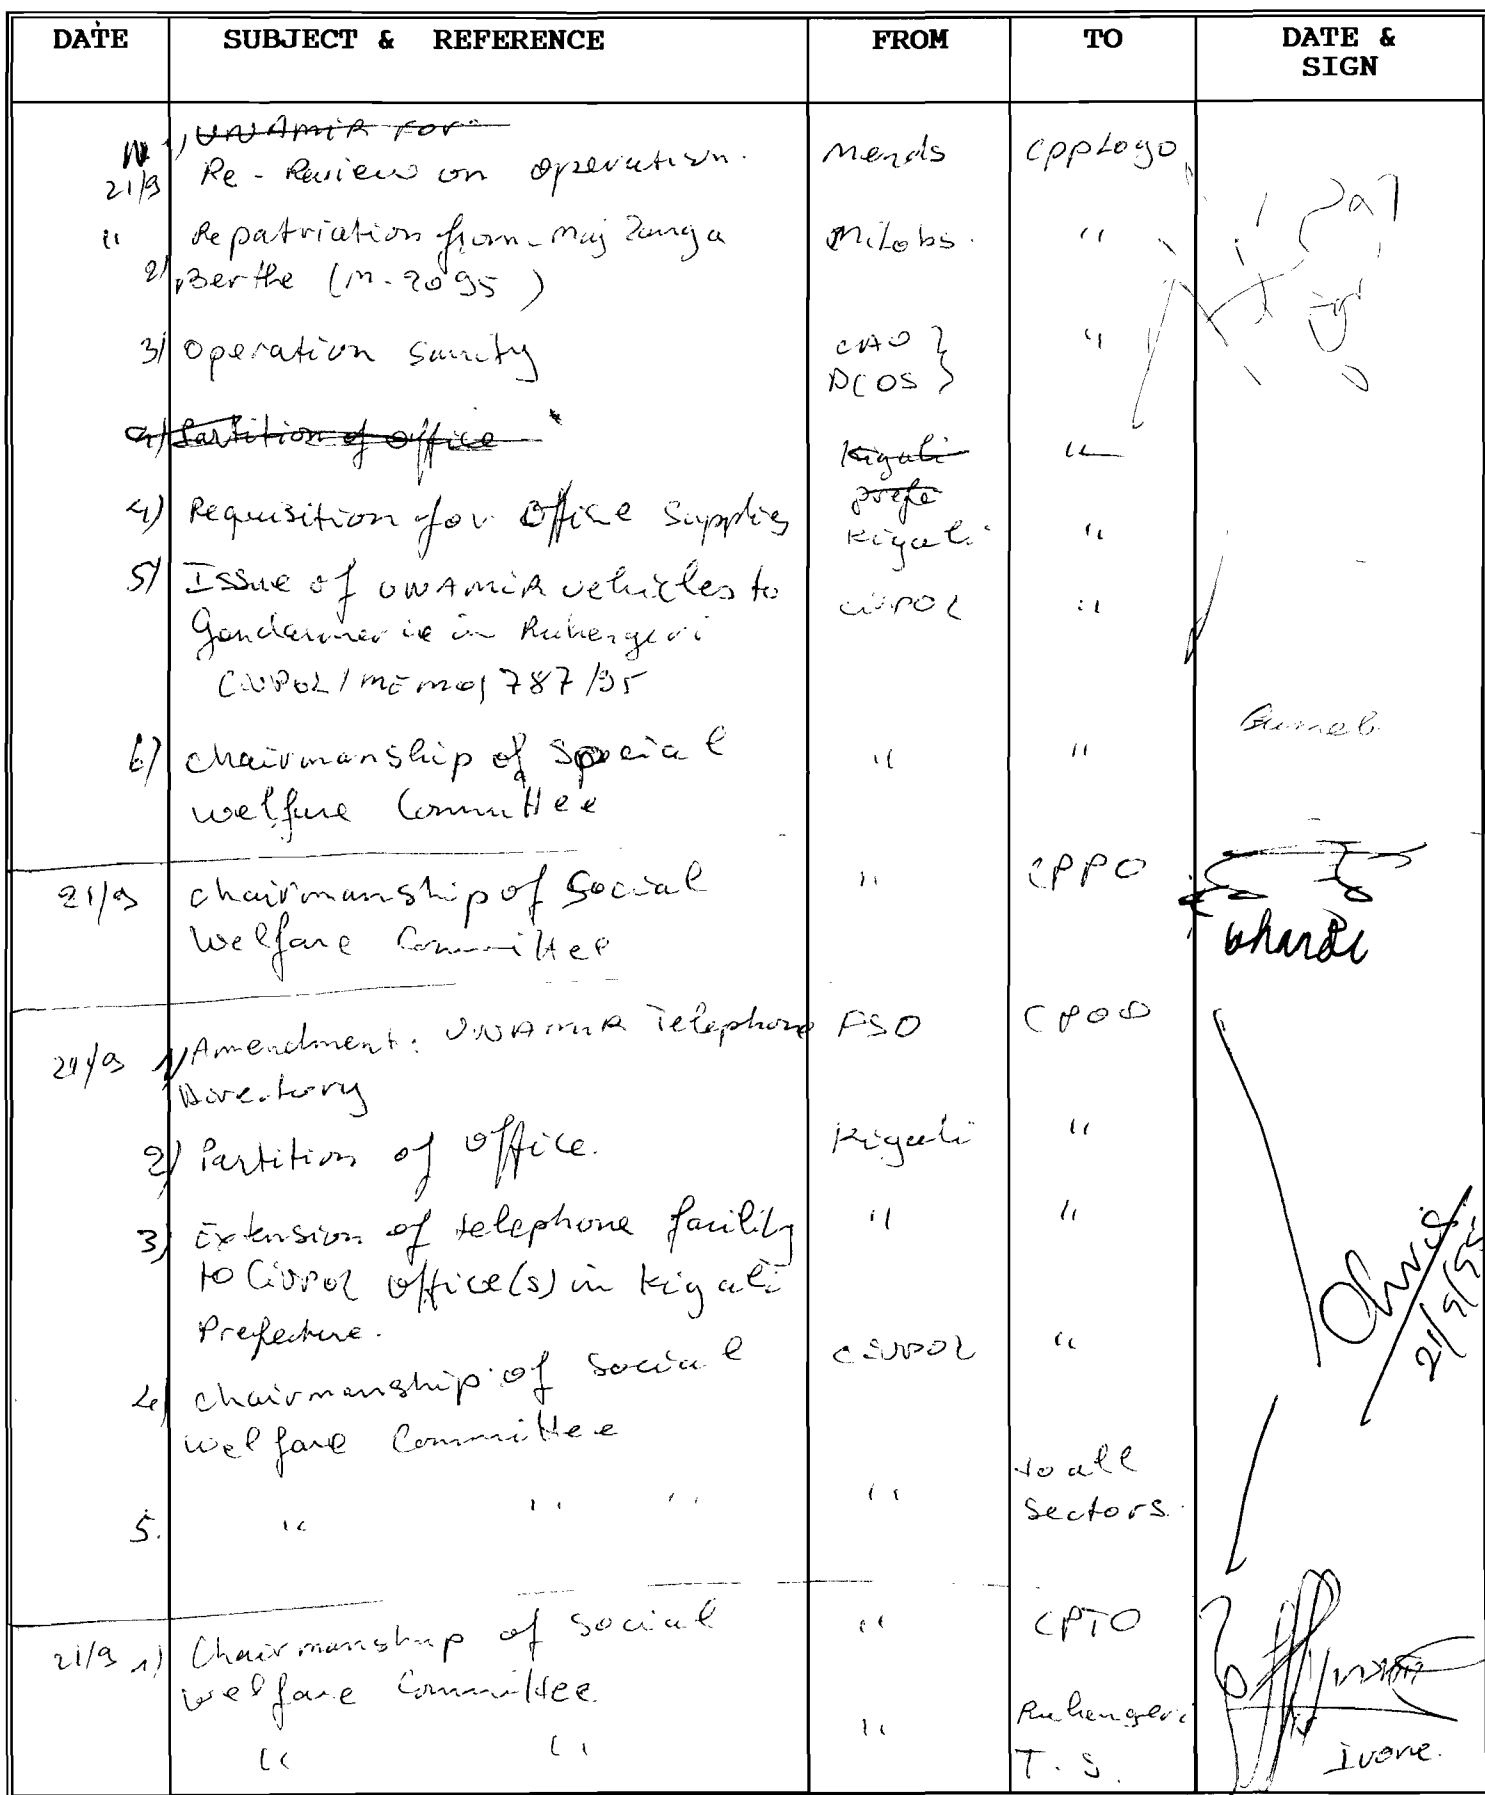 DATE SUBJECT & REFERENCE FROM TO DATE &
SIGN
UNAMIR For
21/9 Re-Review on operation. Mends CPPLogo
" Repatriation from Maj Zanga Milobs. "
2) Berthe (M-2095)
3) Operation Sanity CAO } "
DCOS }
4) Partition of office Kigali "
prefe
4) Requisition for Office Supplies Kigali "
5) Issue of UNAMIR vehicles to CIVPOL "
Gendarmerie in Ruhengeri
CIVPOL/MEMO/787/95
6) Chairmanship of Special " "
welfare Committee
21/9 Chairmanship of Social " CPPO
Welfare Committee
21/9 1) Amendment: UNAMIR Telephone FSO CPOO
Directory
2) Partition of office. Kigali "
3) Extension of telephone facility " "
to Civpol office(s) in Kigali
Prefecture.
4) Chairmanship of Social CIVPOL "
welfare Committee
21/9/95
5. " " " " to all
Sectors.
21/9 1) Chairmanship of Social " CPTO
welfare Committee.
" " " Ruhengeri
T.S.
Ivone.